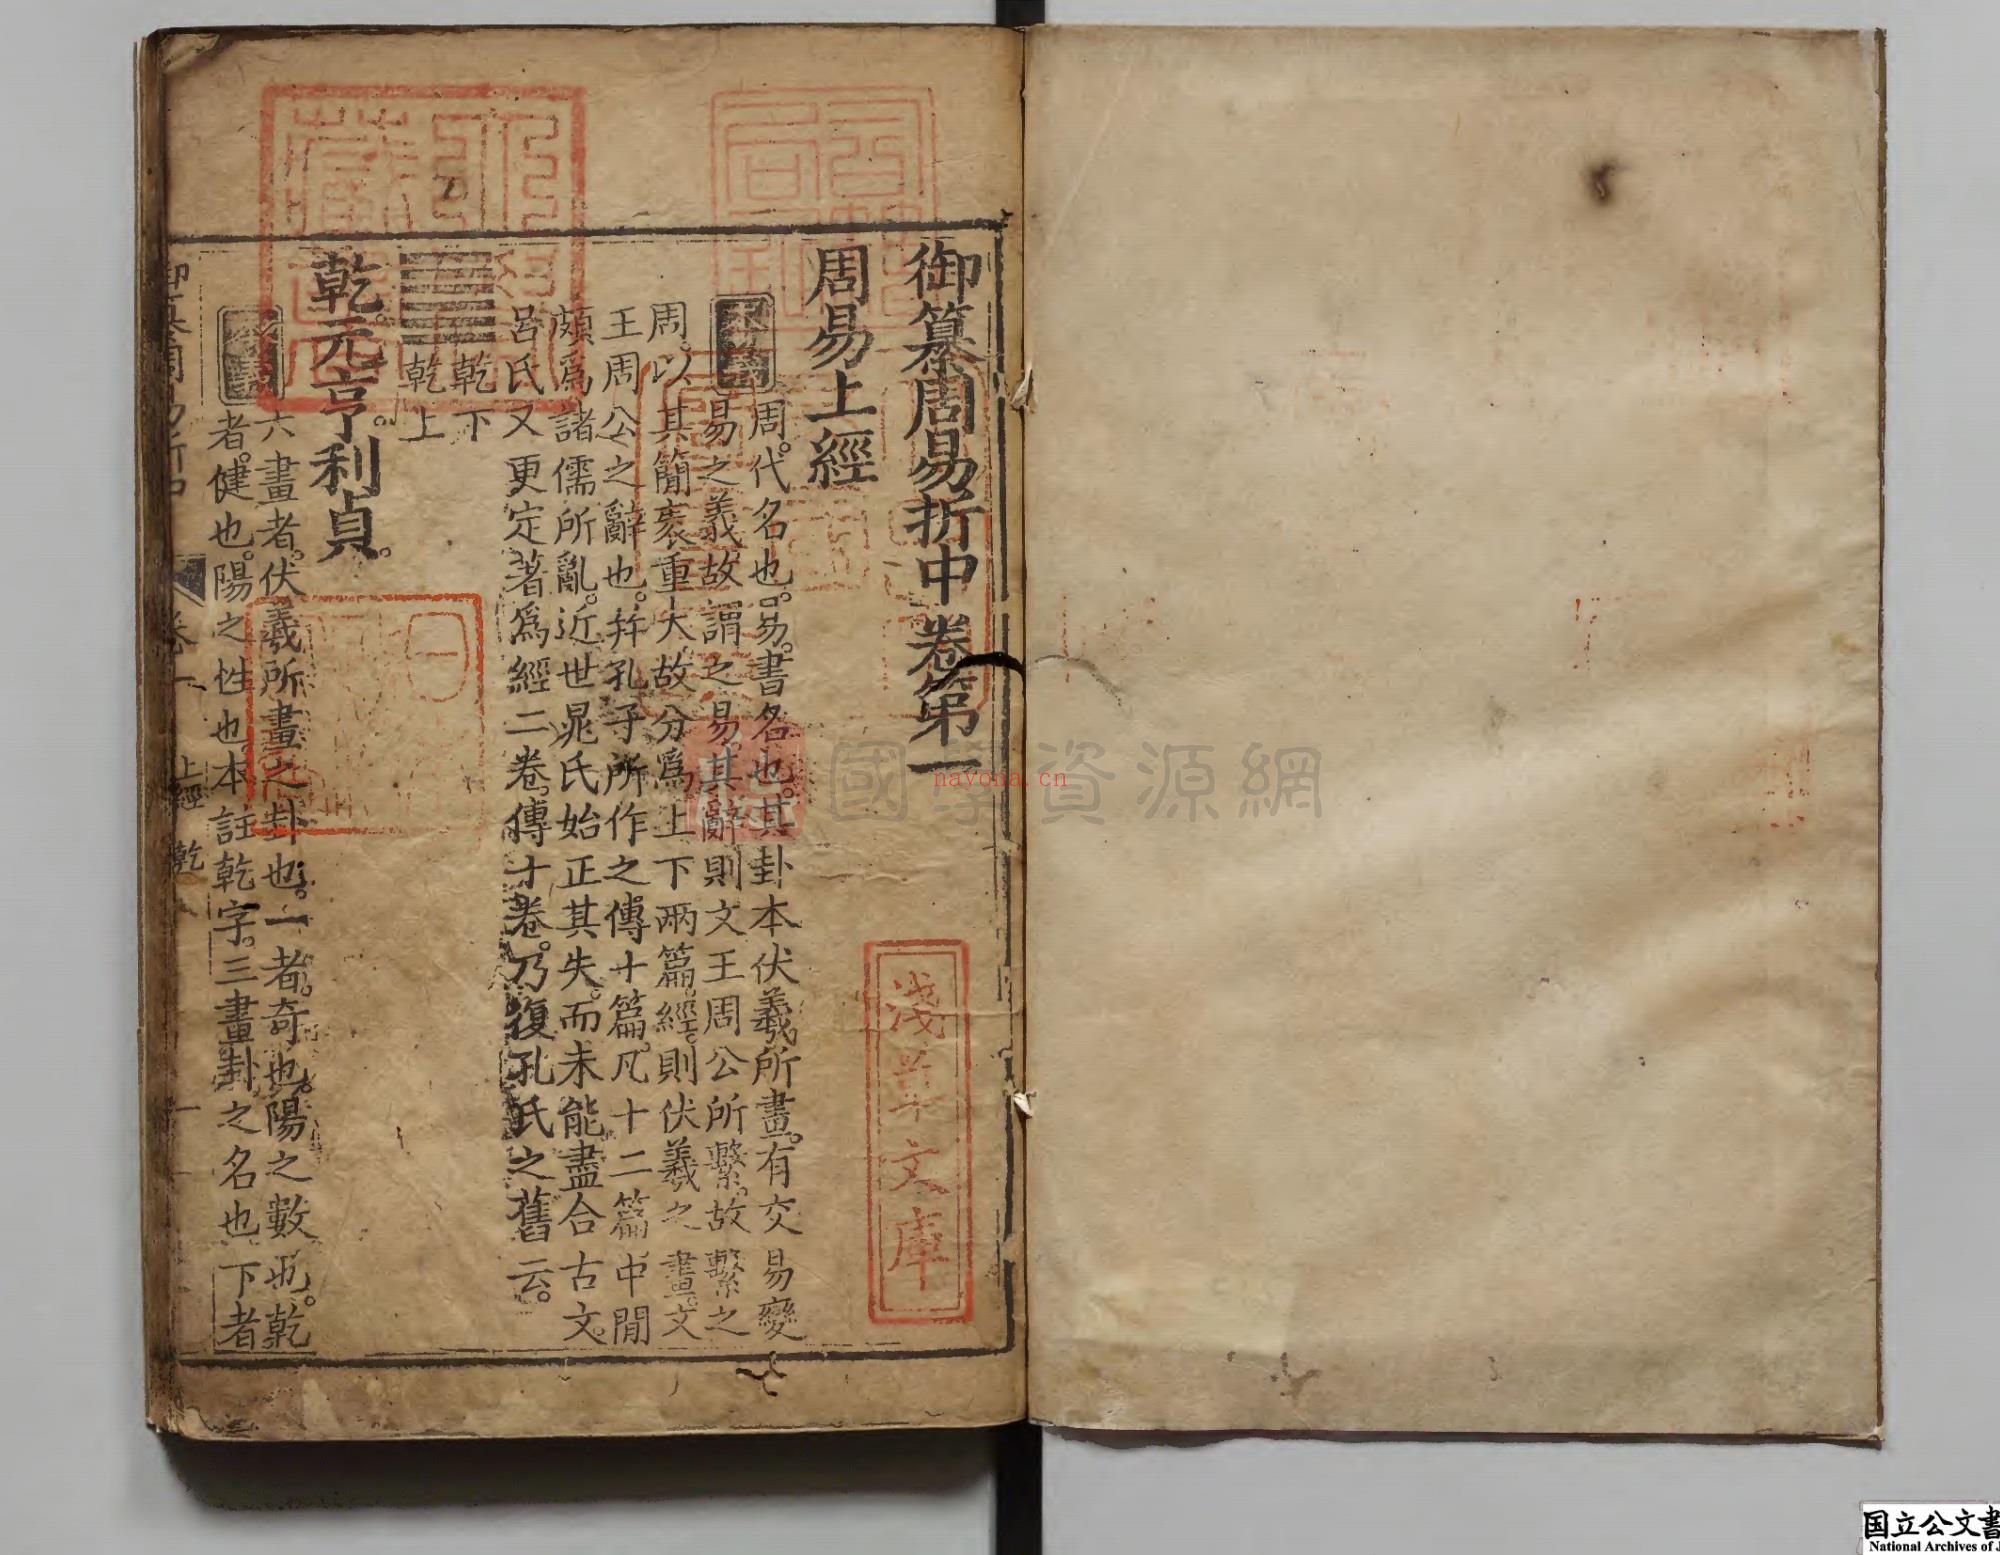 御纂周易折中卷第一
周易上經
本義
周代名也。易書名也。其卦本伏羲所畫。有交易變
易之義。故謂之易。其辭則文王周公所繫。故繫之
周。以其簡袠重大。故分爲上下兩篇。經。則伏羲之畫。文
王周公之辭也。幷孔子所作之傳十篇。凡十二篇。中閒
頗爲諸儒所亂。近世晁氏始正其失。而未能盡合古文。
呂氏又更定著爲經二卷。傳十卷。乃復孔氏之舊云。
乾下
乾上
乾。元亨。利貞。
本義
六畫者。伏羲所畫之卦也。一者。奇也。陽之數也。乾
者。健也。陽之性也。本註乾字。三畫卦之名也。下者
御纂周易折中
卷一
上經 乾
一
淺草文庫
國學資源網
nayona.cn
国立公文書
National Archives of J